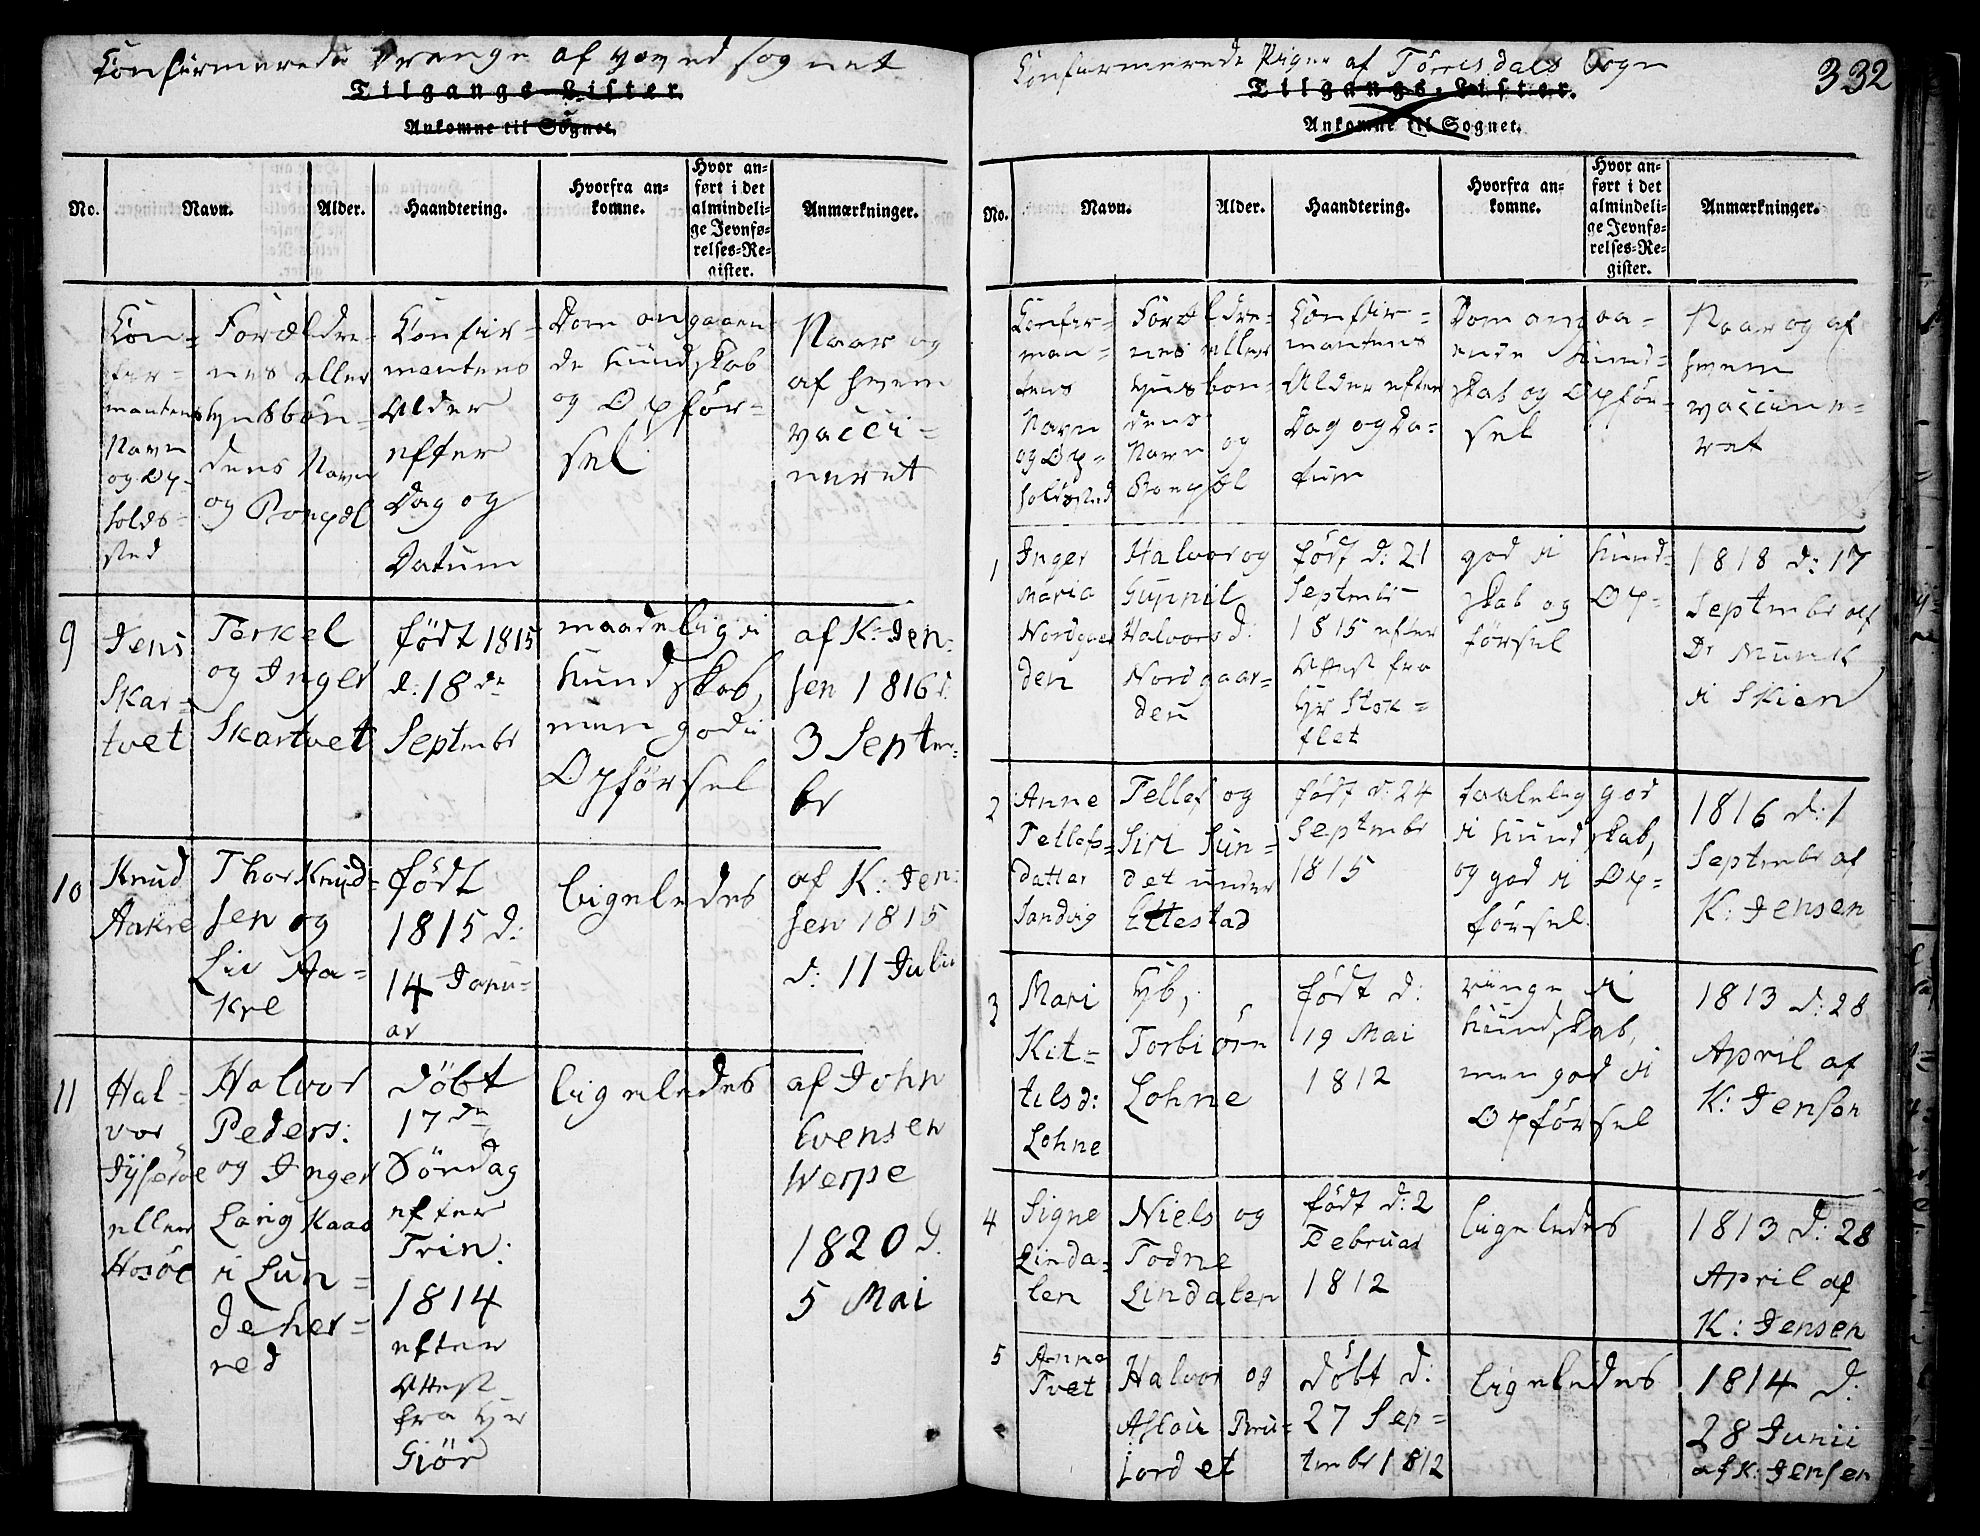 Confirmerede Drenge af Hoved sognet
Tilgangs-Lister.
Ankomne til Sognet.
No.
Navn.
Alder.
Haandtering.
Hvorfra an-
komne.
Hvor an-
ført i det
almindeli-
ge Jevnfø-
relses-Re-
gister.
Anmærkninger.
Con-
fir-
mantens
Navn
og Op-
holds-
sted
Forældre-
nes eller
Huusbon-
dens Navn
og Bopæl
Confir-
mantens
Alder
efter
Dag og
Datum
Dom angaaen-
de Kundskab
og Opför-
sel
Naar og
af hvem
vacci-
neret
9
Jens
Skar-
tvet
Terkel
og Inger
Skartvet
födt 1815
d: 18de
Septembr
maadelig i
Kundskab,
men god i
Opförsel
af K: Jen-
sen 1816 d.
3 Septem-
br
10
Knud
Aakre
Thor Knud-
sen og
Liv Aa-
kre
födt
1815 d:
14 Janu-
ar
ligeledes
af K: Jen-
sen 1815
d: 11 Julii
11
Hal-
vor
eller
Hosöe
Halvor
Peders:
og Inger
Langkaas
i Lun-
deher-
red
döbt
17de
Söndag
efter
Trin:
1814
efter
Attest
fra Hr
Giör
ligeledes
af John
Evensen
Werpe
1820 d.
5 Mai
Confirmerede Piger af Törrisdals Sogn
332
Tilgangs-Lister.
Ankomne til Sognet.
No.
Navn.
Alder.
Haandtering.
Hvorfra an-
komne.
Hvor an-
ført i det
almindeli-
ge Jevnfø-
relses-Re-
gister.
Anmærkninger.
Confir-
man-
tens
Navn
og Op-
holdsted
Foreldre-
nes eller
Husbon-
dens
Navn og
Bopæl
Confir-
mantens
Alder efter
Dag og Da-
tum
Dom angaa-
ende Kund-
skab og Opför-
sel
Naar og af
hvem
vaccine-
ret
1
Inger
Maria
Nordgaar
den
Halvor og
Gunnil
Halvors d:
Nordgaar-
den
födt d: 21
Septembr
1815 efter
Attest fra
Hr Stok-
flet
god i Kund-
skab og Op-
försel
1818 d: 17
Septembr af
Dr Munk
i Skien
2
Anne
Tellefs-
datter
Sandvig
Tellef og
Siri Sun-
det under
Ettestad
födt d: 24
Septembr
1815
taalelig god
i Kundskab,
og god i Op-
försel.
1816 d: 1
Septembr af
K: Jensen
3
Mari
Kit-
tilsd:
Lohne
Hb,
Torbiörn
Lohne
födt d:
19 Mai
1812
ringe i
Kundskab,
men god i
Opförsel
1813 d: 28
April af
K: Jensen
4
Signe
Linda-
len
Niels og
Todne
Lindalen
födt d: 2
Februar
1812
ligeledes
1813 d: 28
April af
K: Jensen
5
Anne
Tvet
Halvor og
Aslou Bru-
jordet
döbt d:
27 Sep-
tembr 1812
ligeledes
1814 d:
28 Junii
af K: Jensen